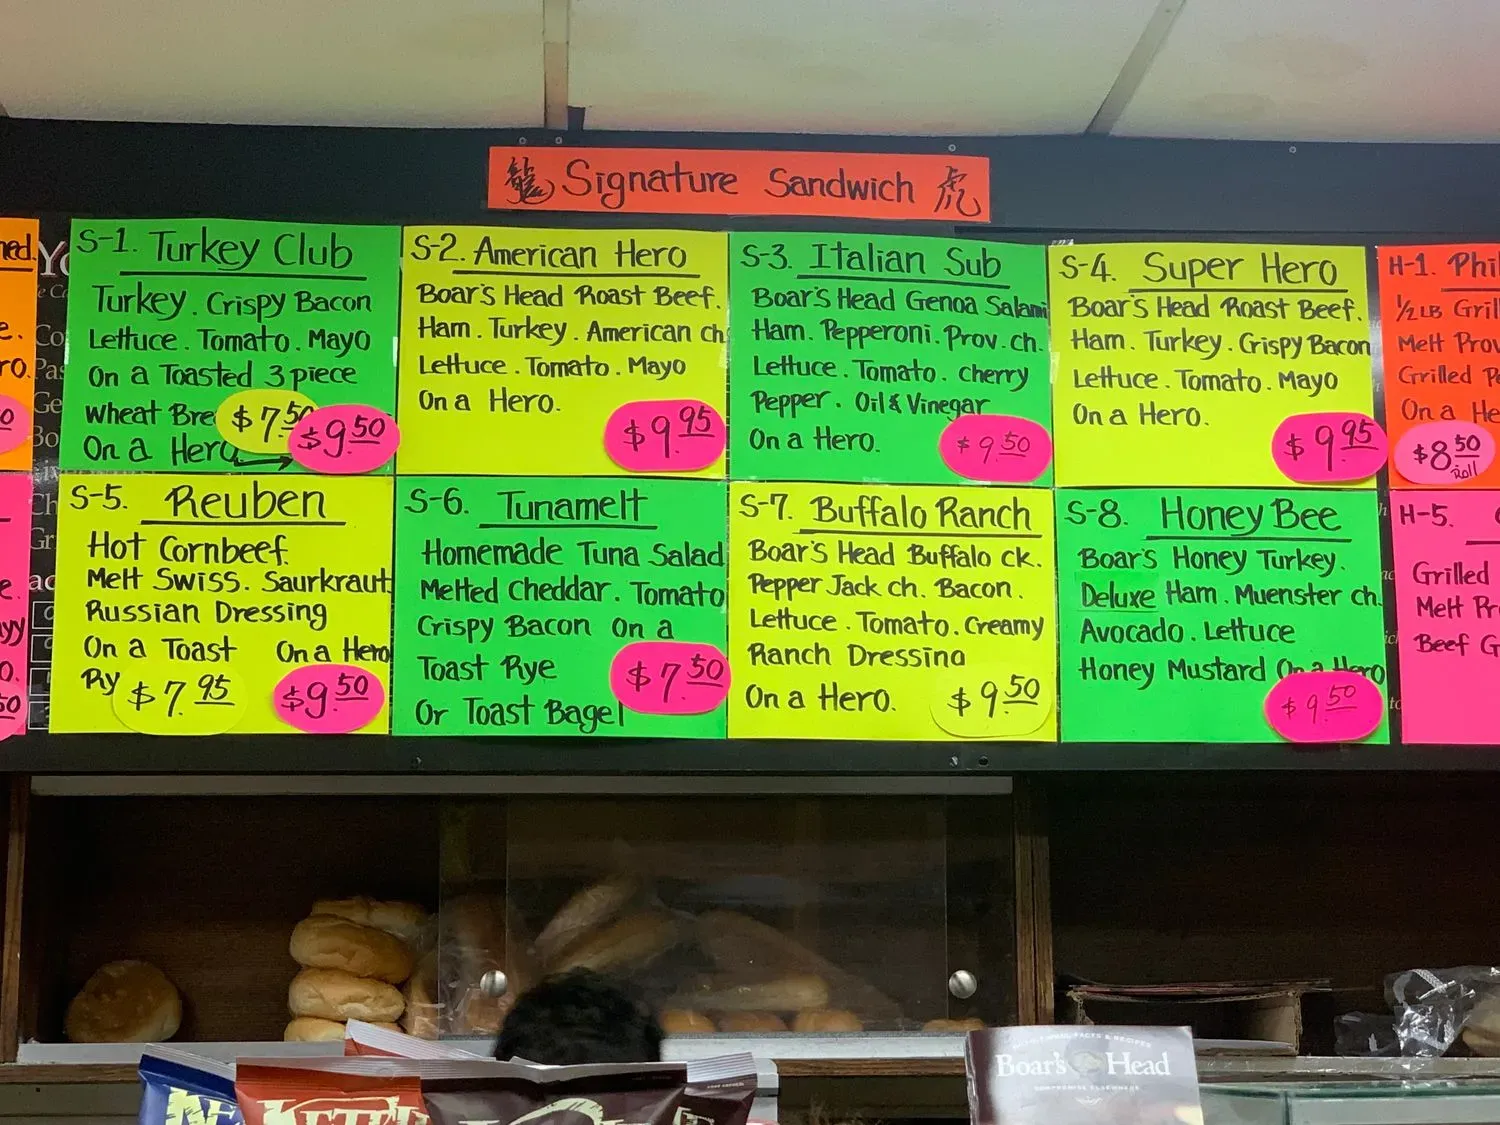 龍 Signature Sandwich 虎
S-1. Turkey Club
Turkey. Crispy Bacon
Lettuce. Tomato. Mayo
On a Toasted 3 piece
Wheat Bre
$7.50
On a Hero
$9.50
S-2. American Hero
Boar's Head Roast Beef.
Ham. Turkey. American ch
Lettuce. Tomato. Mayo
On a Hero.
$9.95
S-3. Italian Sub
Boar's Head Genoa Salami
Ham. Pepperoni. Prov. ch.
Lettuce. Tomato. cherry
Pepper. Oil & Vinegar
On a Hero.
$9.50
S-4. Super Hero
Boar's Head Roast Beef.
Ham. Turkey. Crispy Bacon
Lettuce. Tomato. Mayo
On a Hero.
$9.95
H-1. Phil
1/2 LB Gril
Melt Prov
Grilled Pe
On a He
$8.50
Roll
S-5. Reuben
Hot Cornbeef.
Melt Swiss. Saurkraut
Russian Dressing
On a Toast On a Hero
Ry $7.95 $9.50
S-6. Tunamelt
Homemade Tuna Salad
Melted Cheddar. Tomato
Crispy Bacon On a
Toast Rye
Or Toast Bagel
$7.50
S-7. Buffalo Ranch
Boar's Head Buffalo ck.
Pepper Jack ch. Bacon.
Lettuce. Tomato. Creamy
Ranch Dressing
On a Hero. $9.50
S-8. Honey Bee
Boar's Honey Turkey.
Deluxe Ham. Muenster ch.
Avocado. Lettuce
Honey Mustard On a Hero
$9.50
H-5.
Grilled
Melt Pr
Beef G
Boar's Head
COMPROMISE ELSEWHERE